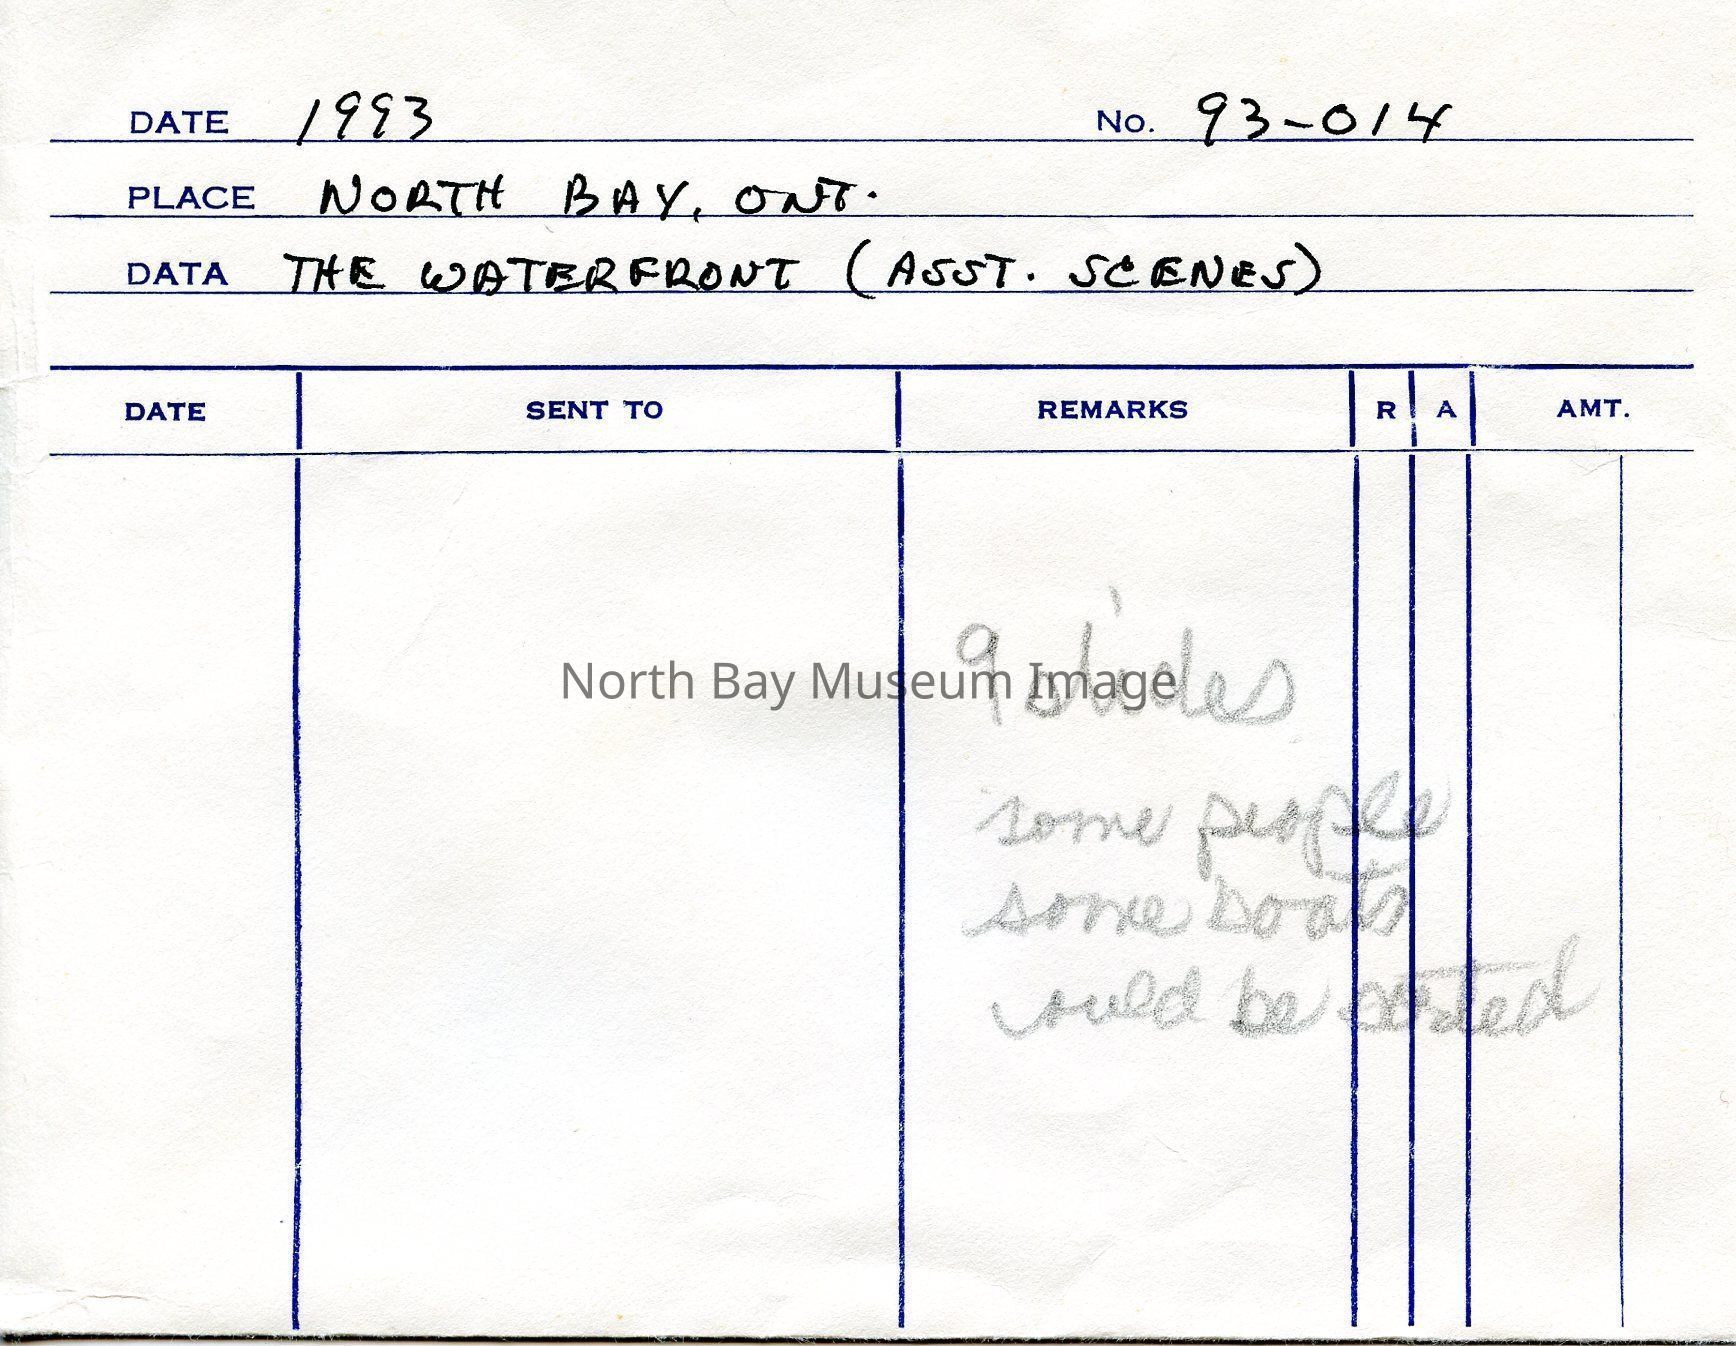 DATE 1993 No. 93-014
PLACE NORTH BAY, ONT.
DATA THE WATERFRONT (ASST. SCENES)
DATE SENT TO REMARKS R A AMT.
9 slides
North Bay Museum Image
some people
some boats
could be